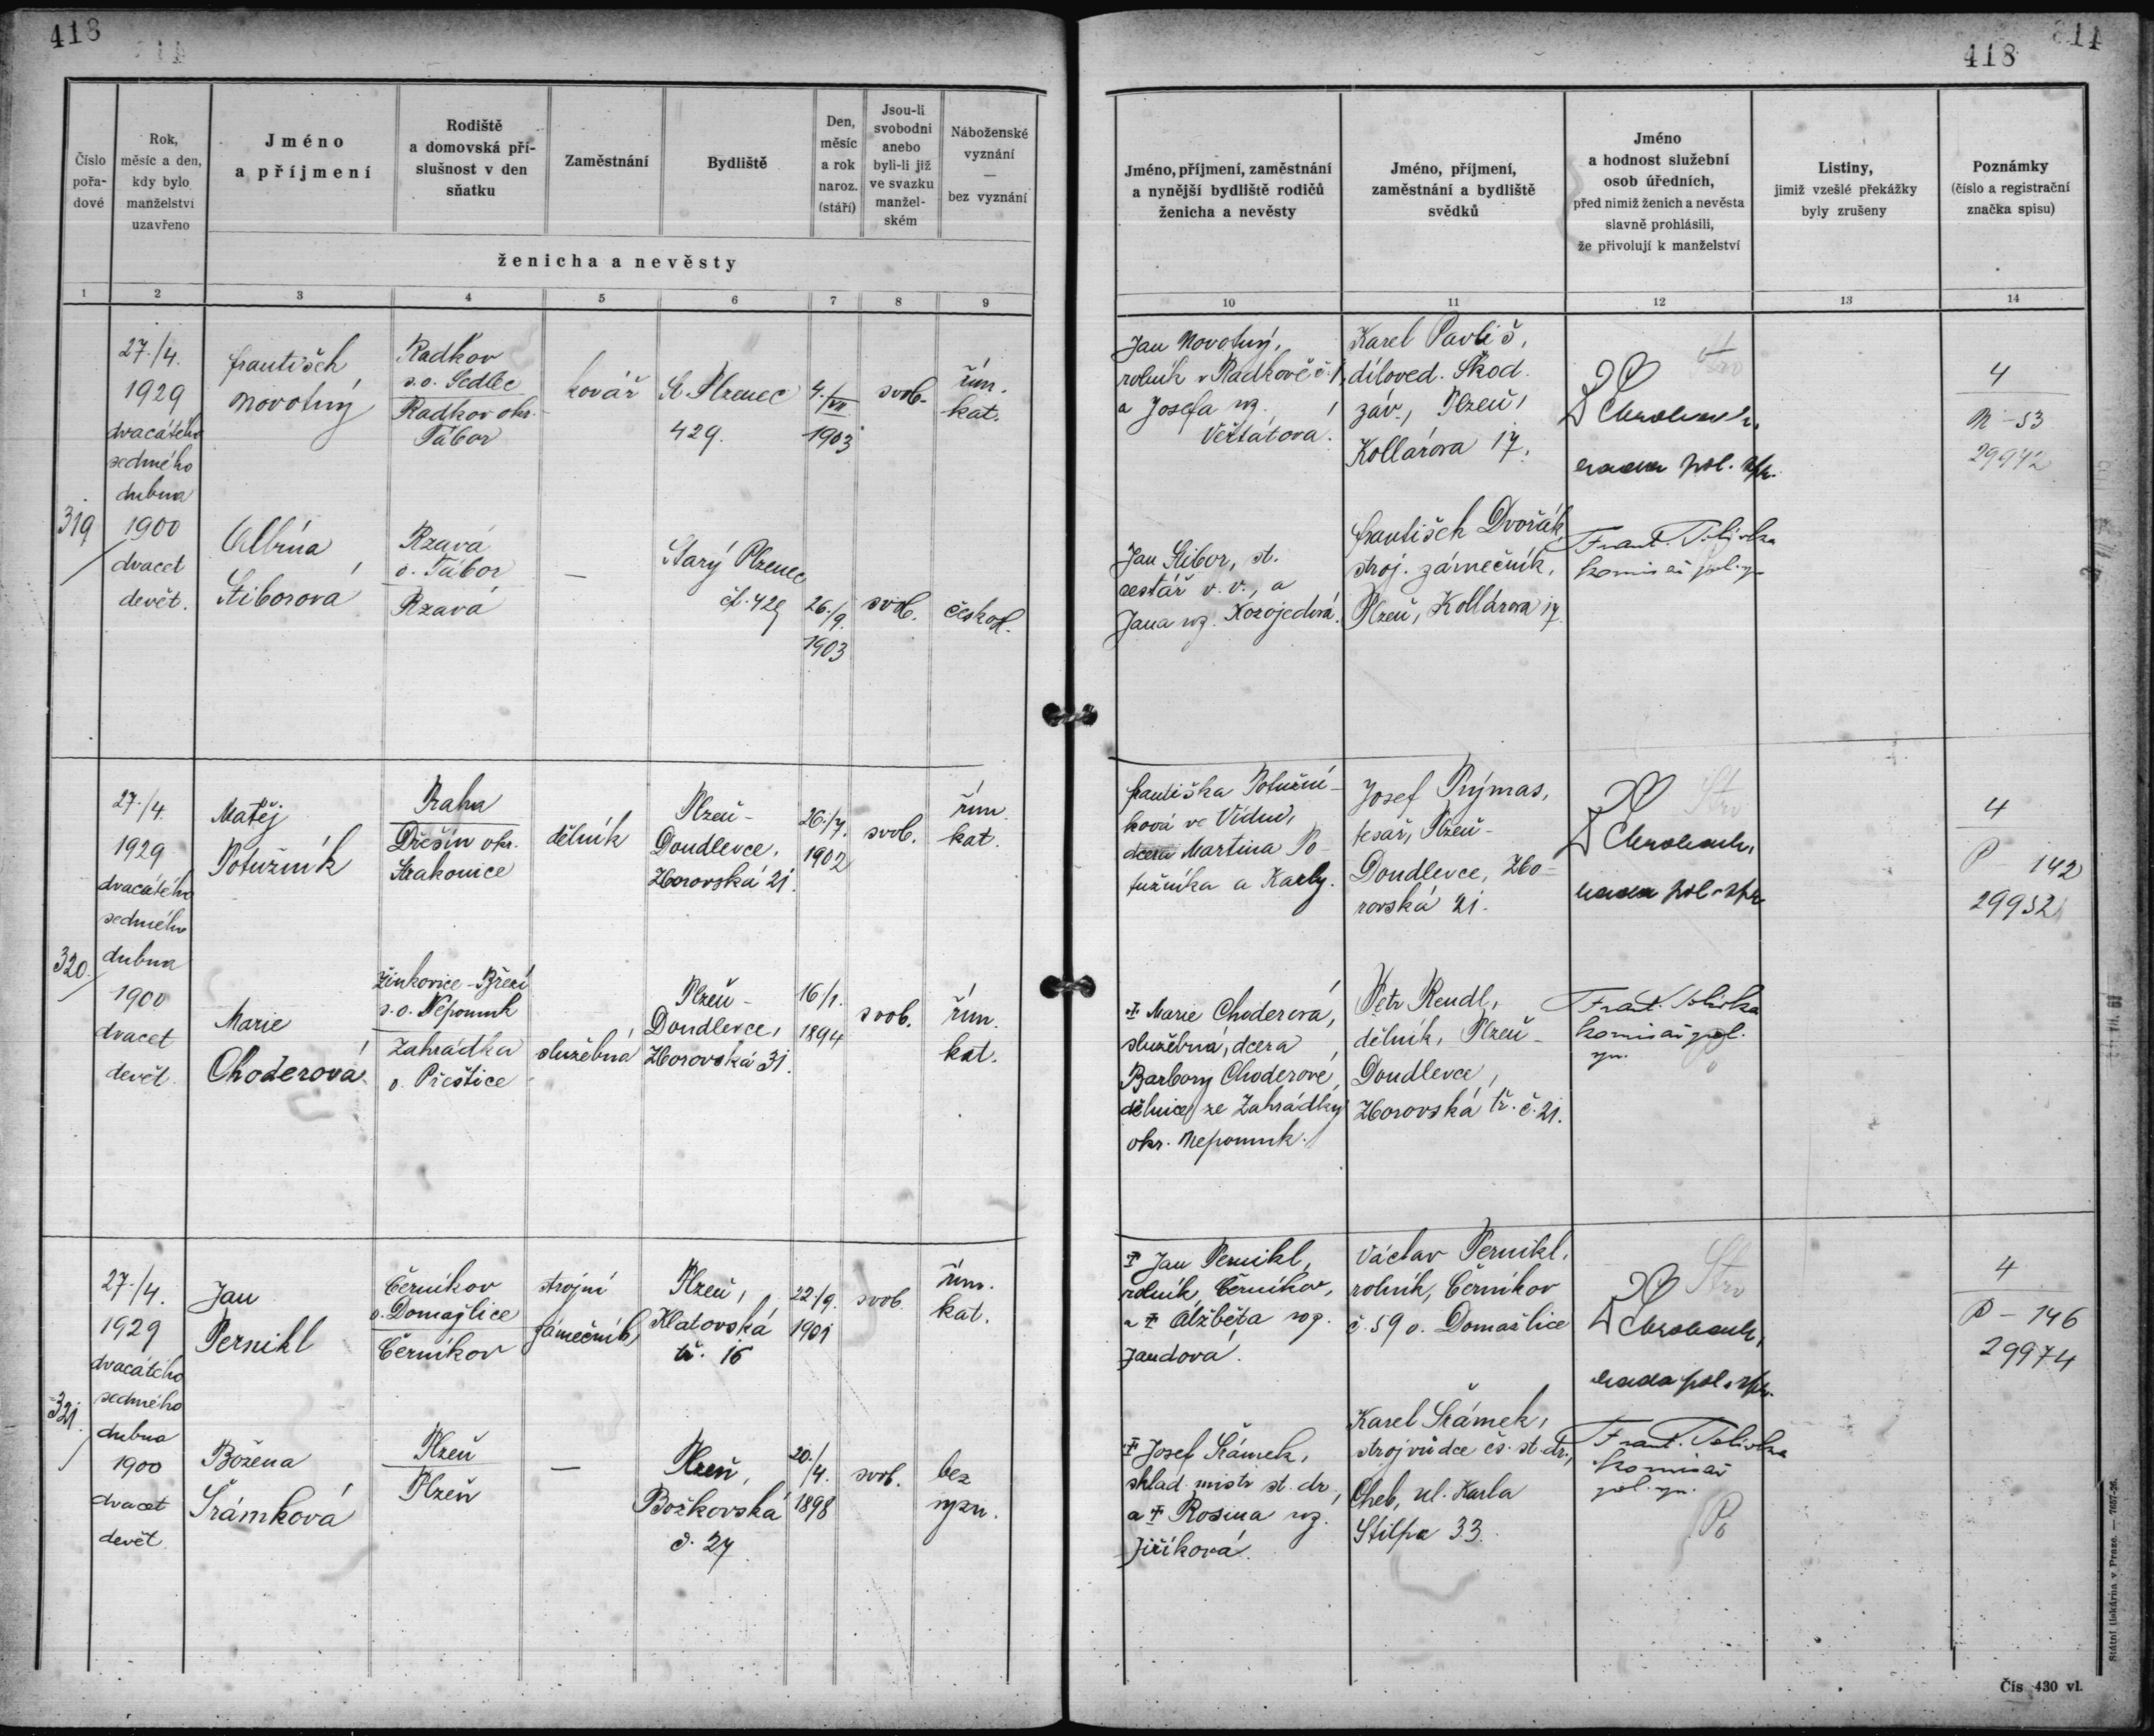 418
418
Číslo
pořa-
dové
Rok,
měsíc a den,
kdy bylo
manželství
uzavřeno
Jméno
a příjmení
Rodiště
a domovská pří-
slušnost v den
sňatku
Zaměstnání
Bydliště
Den,
měsíc
a rok
naroz.
(stáří)
Jsou-li
svobodni
anebo
byli-li již
ve svazku
manžel-
ském
Náboženské
vyznání
—
bez vyznání
ženicha a nevěsty
Jméno, příjmení, zaměstnání
a nynější bydliště rodičů
ženicha a nevěsty
Jméno, příjmení,
zaměstnání a bydliště
svědků
Jméno
a hodnost služební
osob úředních,
před nimiž ženich a nevěsta
slavně prohlásili,
že přivolují k manželství
Listiny,
jimiž vzešlé překážky
byly zrušeny
Poznámky
(číslo a registrační
značka spisu)
1 2 3 4 5 6 7 8 9 10 11 12 13 14
319
27./4.
1929
dvacátého
sedmého
dubna
1900
dvacet
devět.
František
Novotný
Radkov
s.o. Sedlec
Radkov okr.
Tábor
kovář
St. Plzenec
429.
4./VII.
1903
svob.
řím.
kat.
Jan Novotný,
rolník v Radkově č. 1,
a Josefa roz.
Veštátova.
Karel Pavliš,
díloved. Škod.
záv., Plzeň,
Kollárova 17.
rada pol. spr.
4
N - 53
29972
Albína
Stiborová
Rzavá
o. Tábor
Rzavá
—
Starý Plzenec
čp. 429
26./9.
1903
svob.
českosl.
Jan Stibor, st.
cestář v. v., a
Jana roz. Kozojedová.
František Dvořák,
stroj. zámečník,
Plzeň, Kollárova 17.
Frant.
komisař pol.
320.
27./4.
1929
dvacátého
sedmého
dubna
1900
dvacet
devět.
Matěj
Potužník
Praha
Dřešín okr.
Strakonice
dělník
Plzeň -
Doudlevce,
Zborovská 21.
26./7.
1902
svob.
řím.
kat.
Františka Potužní-
ková ve Vídni,
dcera Martina Po-
tužníka a Karly.
Josef Prýmas,
tesař, Plzeň -
Doudlevce, Zbo-
rovská 21.
rada pol. spr.
4
P - 142
29952
Marie
Choderová
Žinkovice - Březí
s.o. Nepomuk
Zahrádka
o. Přeštice
služebná
Plzeň -
Doudlevce,
Zborovská 31.
16/1.
1894
svob.
řím.
kat.
‡ Marie Choderová,
služebná, dcera
Barbory Choderové,
dělnice ze Zahrádky
okr. Nepomuk.
Petr Rendl,
dělník, Plzeň -
Doudlevce,
Zborovská tř. č. 21.
Frant.
komisař pol.
321.
27./4.
1929
dvacátého
sedmého
dubna
1900
dvacet
devět
Jan
Pernikl
Černíkov
o. Domažlice
Černíkov
strojní
zámečník
Plzeň,
Klatovská
tř. 16
22./9.
1901
svob.
řím.
kat.
‡ Jan Pernikl,
rolník, Černíkov,
a ‡ Alžběta roz.
Jandová.
Václav Pernikl,
rolník, Černíkov
č. 59 o. Domažlice
rada pol. spr.
4
P - 146
29974
Božena
Šrámková
Plzeň
Plzeň
—
Plzeň,
Božkovská
č. 27
20./4.
1898
svob.
bez
vyzn.
‡ Josef Šrámek,
sklad. mistr st. dr.,
a ‡ Rosina roz.
Jiříková.
Karel Šrámek,
strojvůdce čs. st. dr.,
Cheb, ul. Karla
Stilpa 33.
Frant.
komisař
pol.
Státní tiskárna v Praze. — 7657-26.
Čís 430 vl.